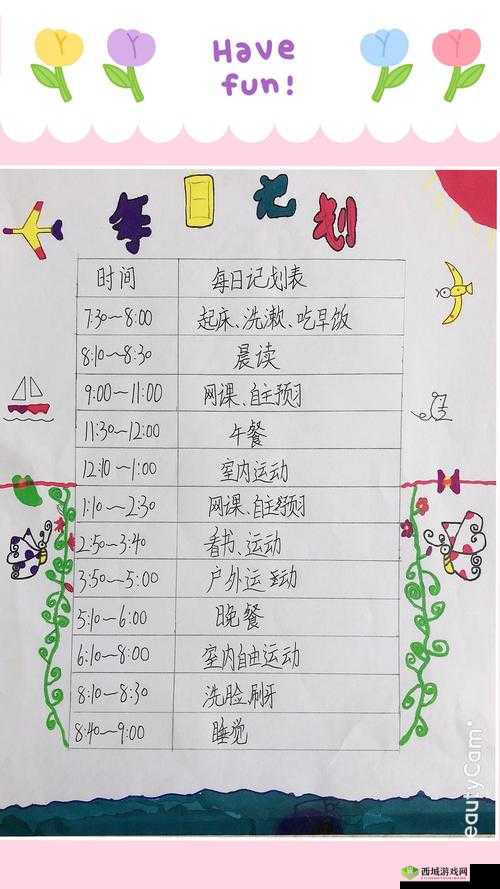 Have
fun!
每日记划
时间 每日记划表
7:30～8:00 起床、洗漱、吃早饭
8:10～8:30 晨读
9:00～11:00 网课、自主预习
11:30～12:00 午餐
12:10～1:00 室内运动
1:10～2:30 网课、自主预习
2:50～3:40 看书、运动
3:50～5:00 户外运动
5:10～6:00 晚餐
6:10～8:00 室内自由运动
8:10～8:30 洗脸刷牙
8:40～9:00 睡觉
eautyCam
西城游戏网